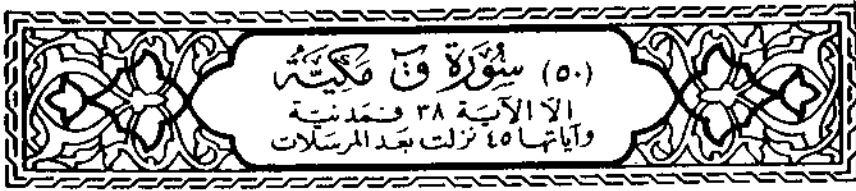 (٥٠) سُورَة قٓ مَكيَّة
الا الآية ٣٨ فمدنية
وآياتها ٤٥ نزلت بعد المرسلات